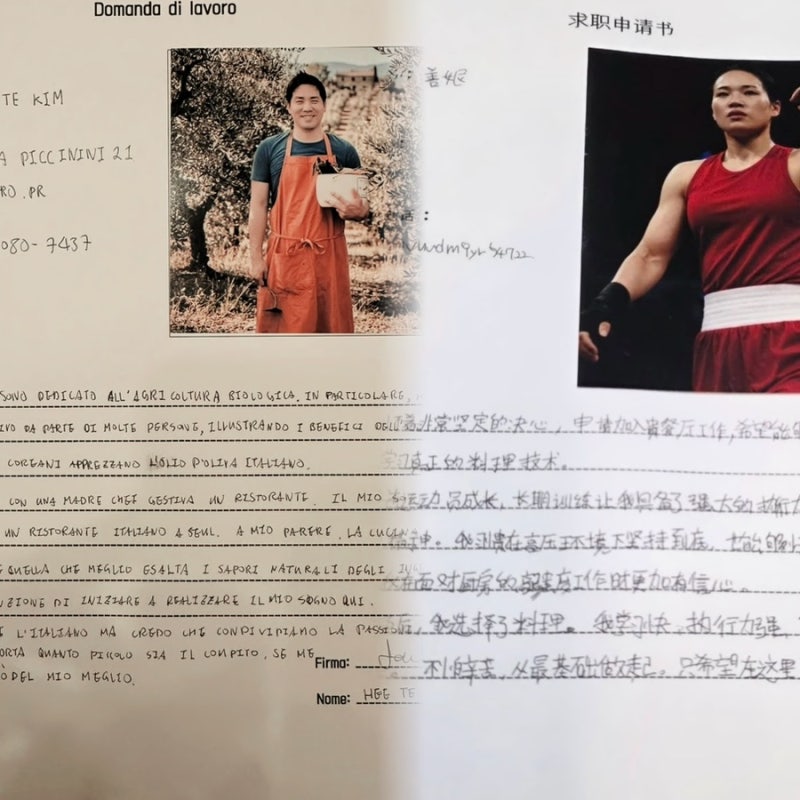 Domanda di lavoro
TE KIM
A PICCININI 21
RO.PR
080-7437
SONO DEDICATO ALL'AGRICOLTURA BIOLOGICA. IN PARTICOLARE,
IVO DA PARTE DI MOLTE PERSONE, ILLUSTRANDO I BENEFICI DELL'
COREANI APPREZZANO L'OLIO D'OLIVA ITALIANO.
CON UNA MADRE CHEF GESTIVA UN RISTORANTE. IL MIO
UN RISTORANTE ITALIANO A SEUL. A MIO PARERE, LA CUCINA
E QUELLA CHE MEGLIO ESALTA I SAPORI NATURALI DEGLI ING
NZIONE DI INIZIARE A REALIZZARE IL MIO SOGNO QUI.
E L'ITALIANO MA CREDO CHE CONDIVIDIAMO LA PASSI
ORTA QUANTO PICCOLO SIA IL COMPITO, SE ME
Ò DEL MIO MEGLIO.
Firma:
Nome: HEE TE
求职申请书
善
着非常坚定的决心，申请加入贵餐厅工作，希望能
真正的料理技术。
运动员成长，长期训练让我具备了强大的执行力
神。我习惯在高压环境下坚持到底，也能够
在面对厨房的高强度工作时更加有信心。
后，我选择了料理。我学习快、执行力强、
不怕辛苦，从最基础做起。只希望在这里